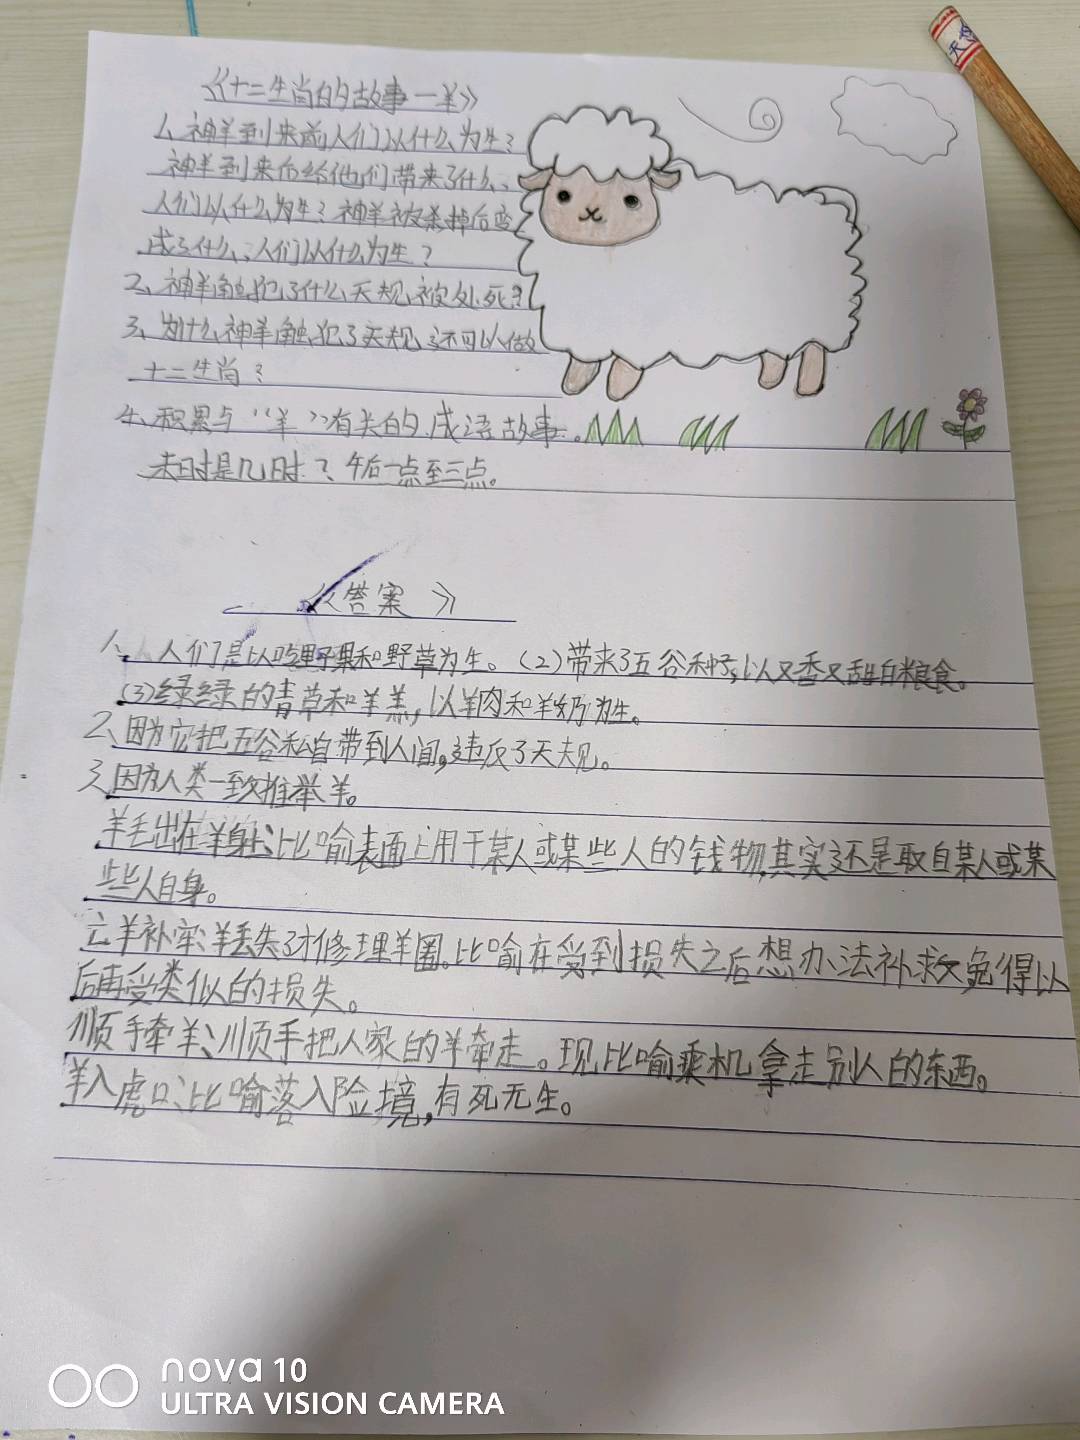 《十二生肖的故事一羊》
1、神羊到来前,人们以什么为生?
神羊到来后给他们带来了什么?
人们以什么为生?神羊被杀掉后变
成了什么?人们以什么为生?
2、神羊触犯了什么天规被处死?
3、为什么神羊触犯了天规还可以做
十二生肖?
4、积累与“羊”有关的成语故事。
未时是几时?午后一点至三点。
《答案》
1、人们是以吃野果和野草为生。(2)带来了五谷种子,以又香又甜白粮食。
(3)绿绿的青草和羊羔,以羊肉和羊奶为生。
2、因为它把五谷私自带到人间,违反了天规。
3、因为人类一致推举羊。
羊毛出在羊身上:比喻表面上用于某人或某些人的钱物,其实还是取自某人或某
些人自身。
亡羊补牢:羊丢失了才修理羊圈。比喻在受到损失之后想办法补救,免得以
后再受类似的损失。
顺手牵羊:顺手把人家的羊牵走。现比喻乘机拿走别人的东西。
羊入虎口:比喻落入险境,有死无生。
天
nova 10
ULTRA VISION CAMERA